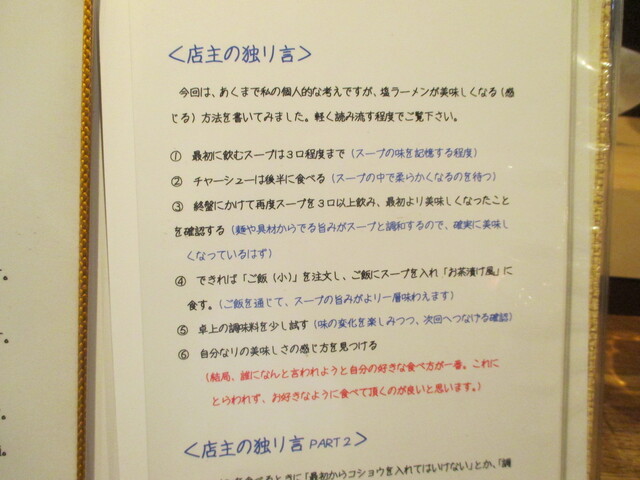 <店主の独り言>
今回は、あくまで私の個人的な考えですが、塩ラーメンが美味しくなる(感
じる)方法を書いてみました。軽く読み流す程度でご覧下さい。
① 最初に飲むスープは3口程度まで(スープの味を記憶する程度)
② チャーシューは後半に食べる(スープの中で柔らかくなるのを待つ)
③ 終盤にかけて再度スープを3口以上飲み、最初より美味しくなったこと
を確認する(麺や具材からでる旨みがスープと調和するので、確実に美味し
くなっているはず)
④ できれば「ご飯(小)」を注文し、ご飯にスープを入れ「お茶漬け風」に
食す。(ご飯を通じて、スープの旨みがより一層味わえます)
⑤ 卓上の調味料を少し試す(味の変化を楽しみつつ、次回へつなげる確認)
⑥ 自分なりの美味しさの感じ方を見つける
(結局、誰になんと言われようと自分の好きな食べ方が一番。これに
とらわれず、お好きなように食べて頂くのが良いと思います。)
<店主の独り言 PART2>
を食べるときに「最初からコショウを入れてはいけない」とか、「調